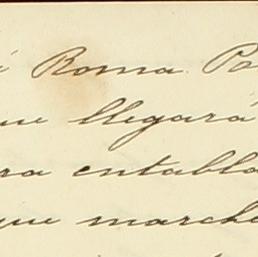 á Roma. Pa
ue llegará
ra entabla
que marcha